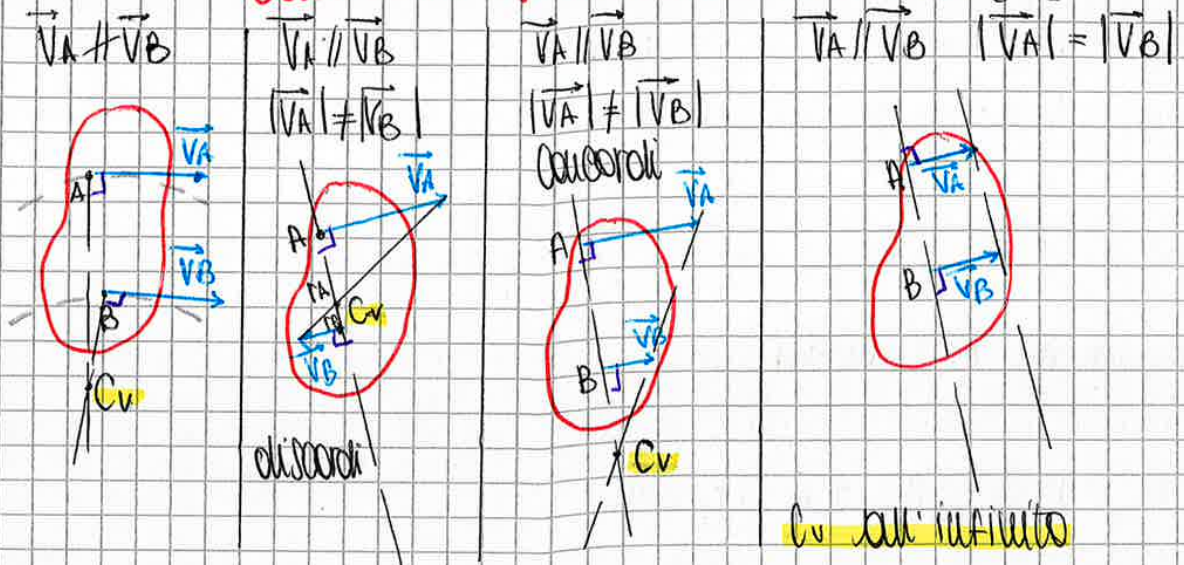 V⃗A ∦ V⃗B
A
V⃗A
B
V⃗B
Cv
V⃗A // V⃗B
|V⃗A| ≠ |V⃗B|
V⃗A
A
rA
Cv
rB
V⃗B
discordi
V⃗A // V⃗B
|V⃗A| ≠ |V⃗B|
concordi
V⃗A
A
V⃗B
B
Cv
V⃗A // V⃗B |V⃗A| = |V⃗B|
A
V⃗A
B
V⃗B
Cv all' infinito